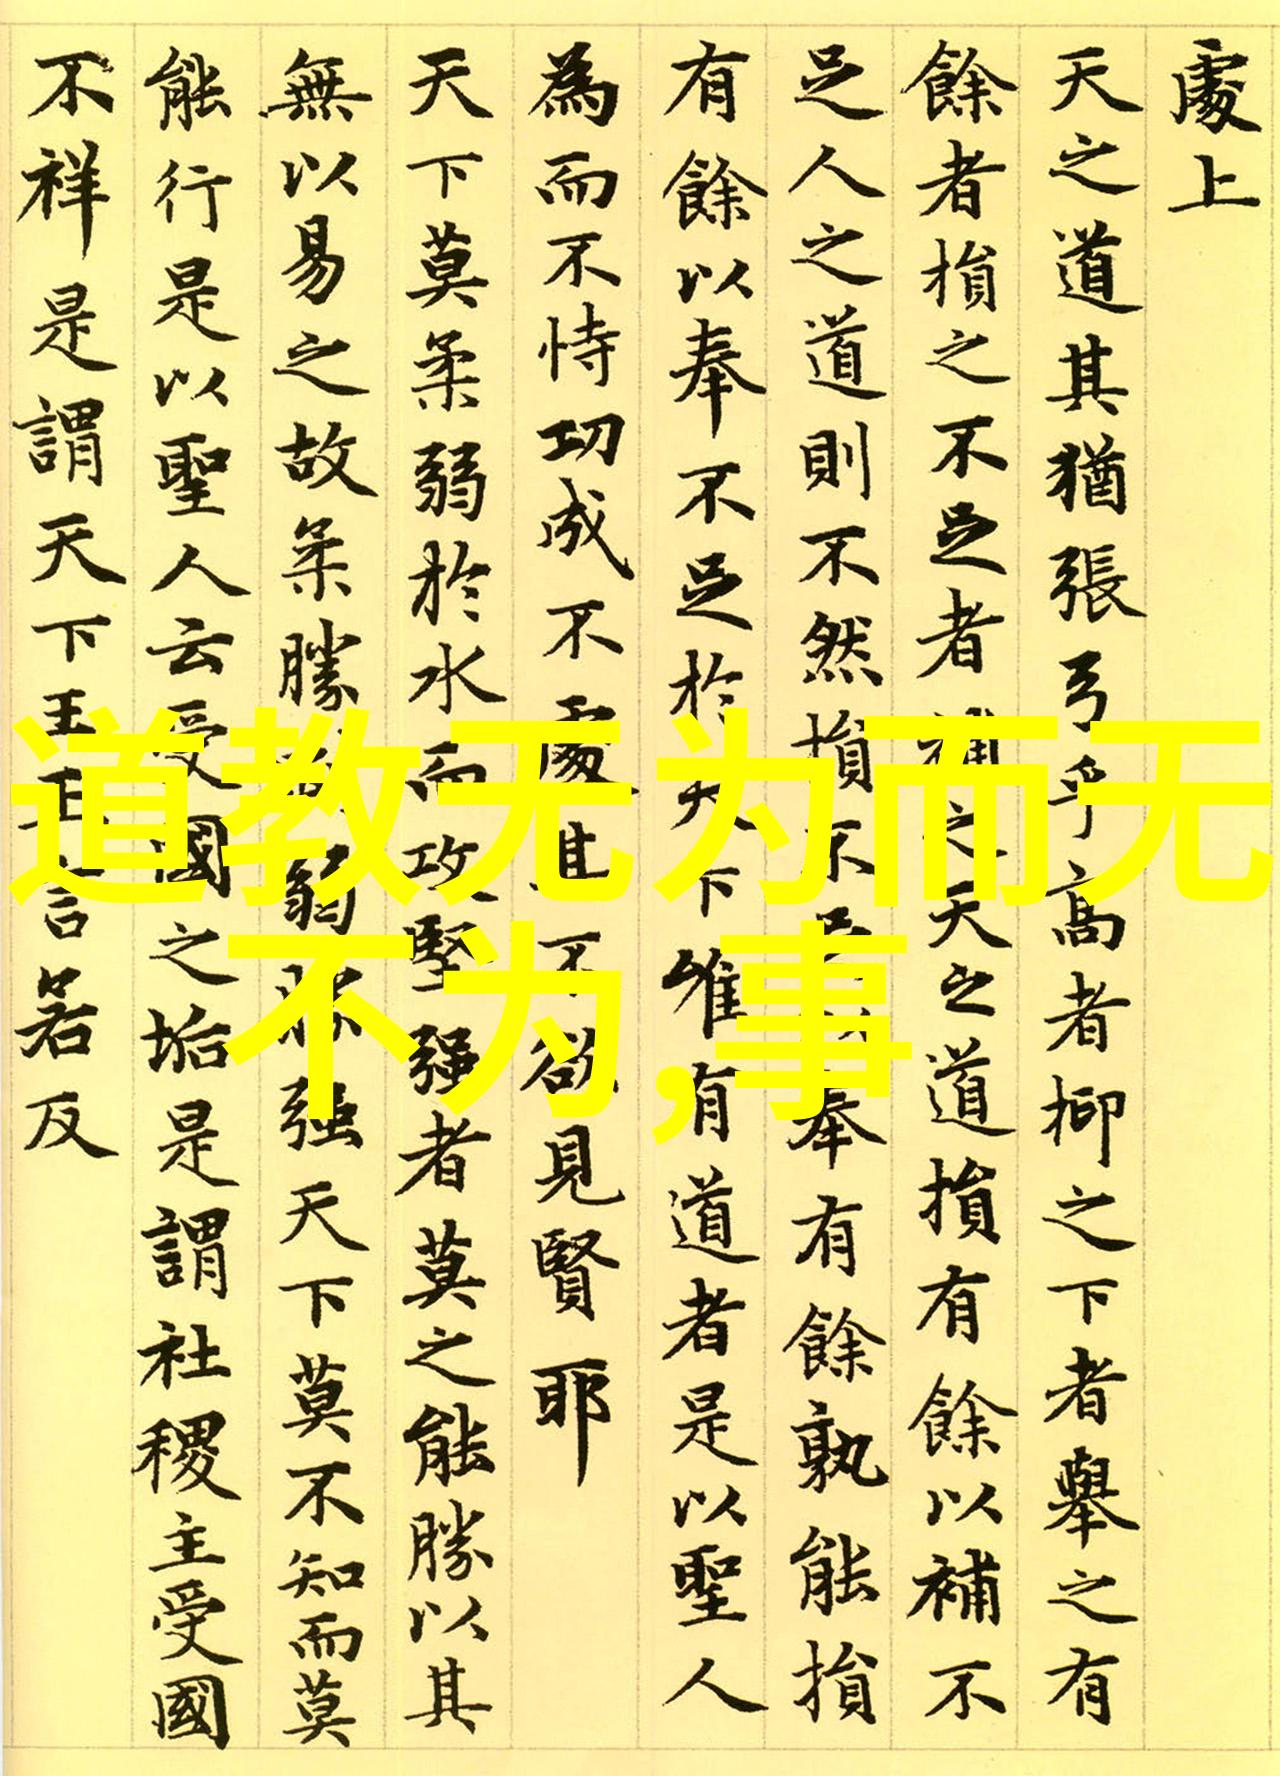 處上
天之道其猶張弓乎高者抑之下者舉之有
餘者損之不足者補之天之道損有餘以補不
足人之道則不然損不足以奉有餘孰能損
有餘以奉不足於天下唯有道者是以聖人
為而不恃功成不處其不欲見賢耶
天下莫柔弱於水而攻堅强者莫之能勝以其
無以易之故柔勝弱勝强天下莫不知而莫
能行是以聖人云受國之垢是謂社稷主受國
不祥是謂天下王正言若反
道教无为而无
不为,事